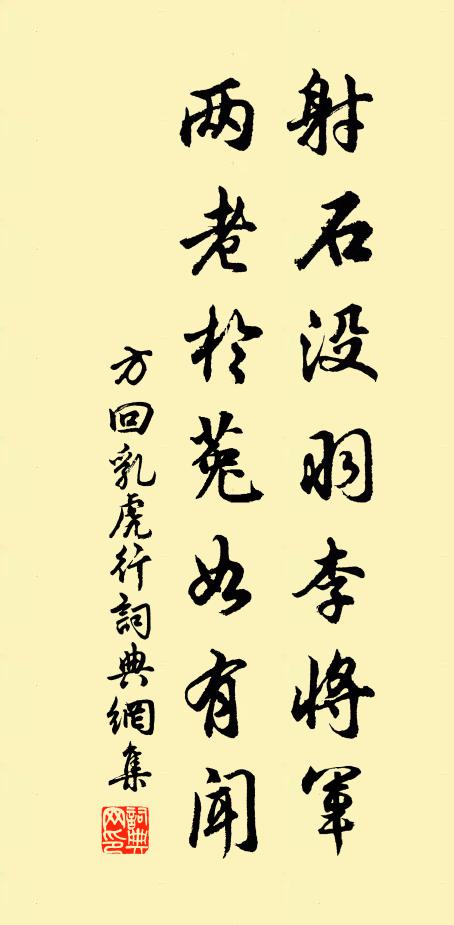 射石没羽李将軍
两老於菟如有闻
方回乳虎行詞典網集
詞典網印